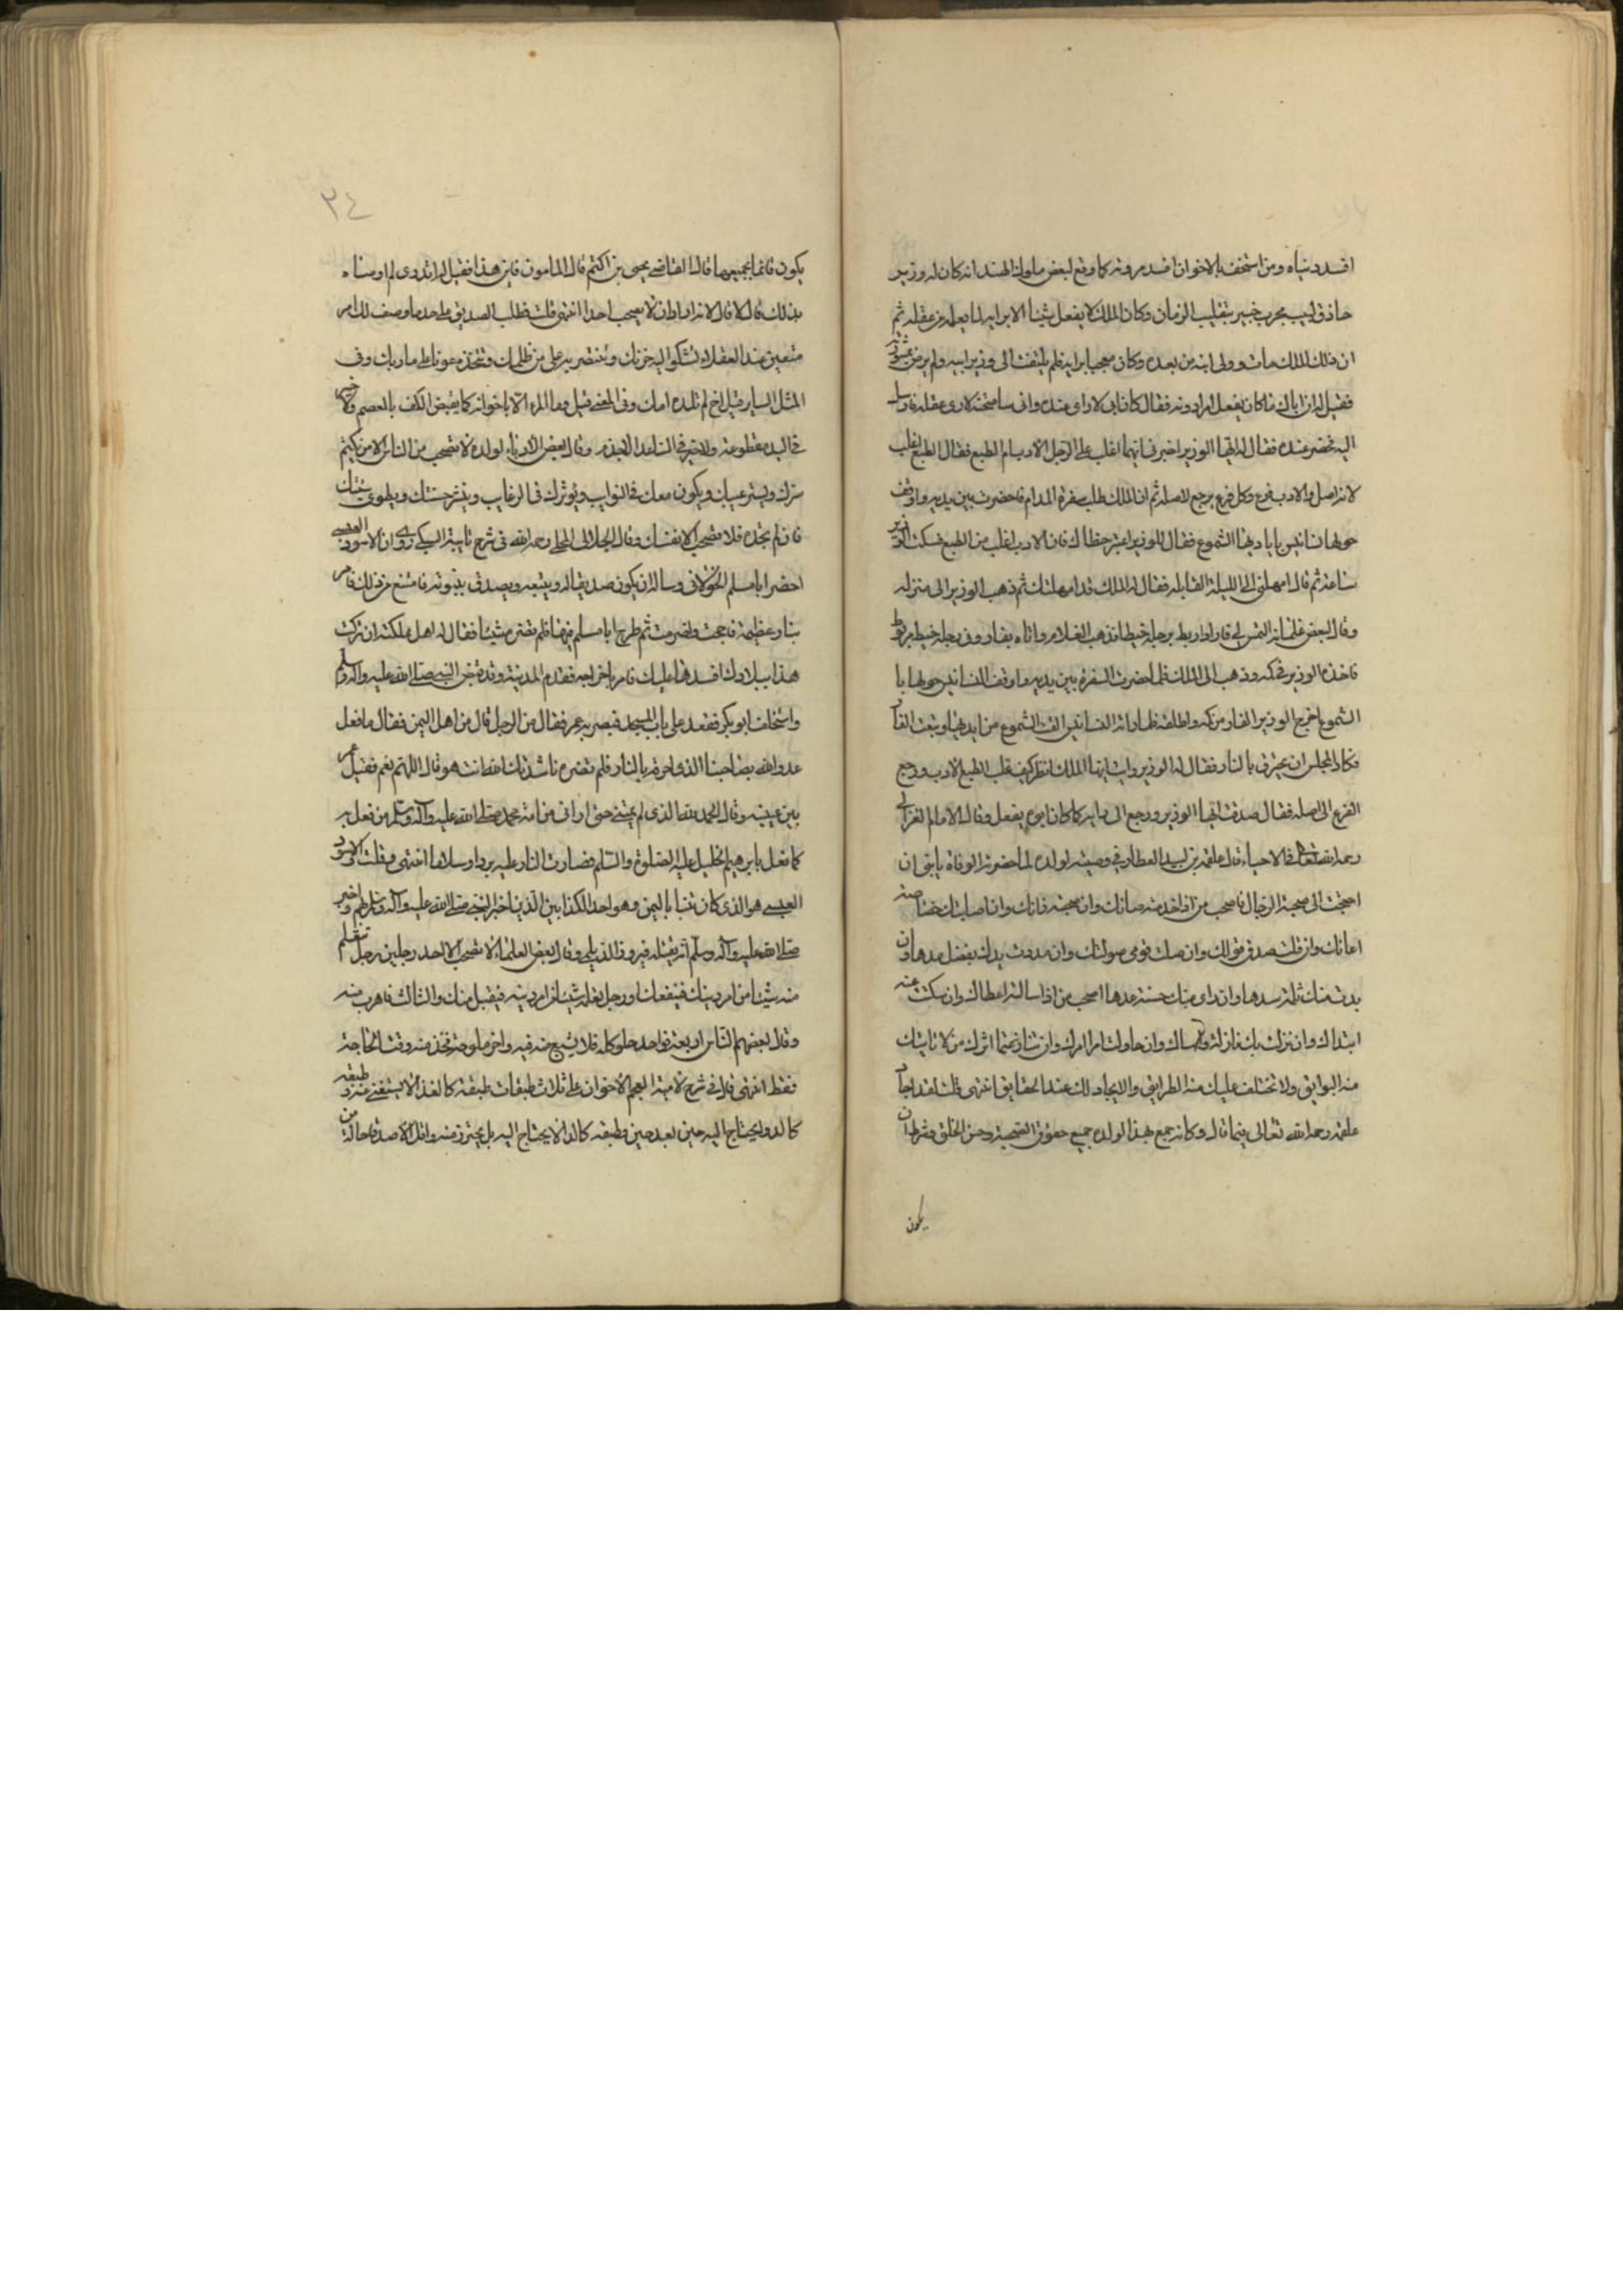 افسد دنياه ومن استخف بالاخوان افسد مروته كما وقع لبعض ملوك الهند انه كان له وزير
حاذق لبيب مجرب خبير بتقليب الزمان وكان الملك لا يفعل شيئا الا برايه لما يعلم من عقله ثم
ان ذلك الملك مات وولى ابنه من بعده وكان معجبا برايه فلم يلتفت الى وزير ابيه ولم يرض بمشورته
فقيل له ان اباك ما كان يفعل امرا دونه فقال كان ابى لا راى عنده وانى سامتحنه لارى عقله فارسل
اليه فحضر عنده فقال له ايها الوزير اخبرنى ايهما اغلب على الرجل الادب ام الطبع فقال الطبع اغلب
لانه اصل والادب فرع وكل فرع يرجع لاصله ثم ان الملك طلب سفرة المدام فاحضرت بين يديه واوقف
حولها سنانير باياديها الشموع فقال للوزير اعتبر خطاك فان الادب اغلب من الطبع فسكت الوزير
ساعة ثم قال امهلنى الى الليلة القابله فقال له الملك قد امهلتك ثم ذهب الوزير الى منزله
وقال لبعض غلمانه التمس لى فارا واربط برجله خيطا فذهب الغلام واتاه بفار وفى رجله خيط مربوط
فاخذه الوزير فى كمه وذهب الى الملك فلما حضرت السفرة بين يديه واوقف السنانير حولها با
الشموع اخرج الوزير الفار من كمه واطلقه فلما راته السنانير القت الشموع من ايديها وتبعت الفار
فكاد المجلس ان يحترق بالنار فقال له الوزير رايت ايها الملك انظر كيف غلب الطبع الادب ورجع
الفرع الى اصله فقال صدقت ايها الوزير ورجع الى رايه كما كان ابوه يفعل وقال الامام الغزالى
رحمه الله تعالى فى الاحياء قال علقمه بن لبيد العطاردى فى وصيته لولده لما حضرته الوفاة يا بنى ان
احتجت الى صحبة الرجال فاصحب من اذا خدمته صانك وان صحبته زانك وان اصابتك خصاصه
اعانك وان قلت صدق قولك وان صلت قوى صولتك وان مددت يدك بفضل مدها وان
بدت منك ثلمة سدها وان راى منك حسنة عدها اصحب من اذا سالته اعطاك وان سكت عنه
ابتداك وان نزلت بك نازلة واساك وان حاولت امرا امرك وان تنازعتما اثرك من لا تاتيك
منه البوايق ولا تختلف عليك منه الطرايق ولا يخذلك عند الحقايق انتهى قلت لقد اجاد
علقمة رحمه الله تعالى فيما قال وكانه جمع بهذا لولده جميع حقوق الصحبة وحسن الخلق وشرط ان
يكون
٣٤
يكون قائما بجميعها قال القاضى يحيى بن اكثم قال المامون فاين هذا فقيل له اتدرى لم اوصاه
بذلك قال لا قال لانه اراد ان لا يصحب احدا انتهى قلت فطلب الصديق على حد ما وصف لك امر
متعين عند العقلاء لتشكوا اليه حزنك وتنتصر به على من ظلمك وتتخذه عونا على ما رابك وفى
المثل الساير قيل اخ لم تلده امك وفى المعنى قيل وما المرء الا باخوانه كما يقبض الكف بالمعصم ولا خير
فى اليد مقطوعة ولا خير فى الساعد الاجذم وقال بعض الادباء لولده لا تصحب من الناس الا من يكتم
سرك ويستر عيبك ويكون معك فى النوايب ويؤثرك فى الرغايب وينشر حسنتك ويطوى سيئتك
فان لم تجده فلا تصحب الا نفسك وقال الجلال المحلى رحمه الله فى شرح تائية السبكى روى ان الاسود العنسى
احضر ابا مسلم الخولانى وساله ان يكون صديقا له ويتبعه ويصدق بنبوته فامتنع من ذلك فامر
بنار عظيمة فاججت واضرمت ثم طرح ابا مسلم فيها فلم تضره شيئا فقال له اهل مملكته ان تركت
هذا ببلادك افسدها عليك فامر باخراجه فقدم المدينة وقد قبض النبى صلى الله عليه واله وسلم
واستخلف ابو بكر فقعد على باب المسجد فبصر به عمر فقال من الرجل قال من اهل اليمن فقال ما فعل
عدو الله بصاحبنا الذى احرقه بالنار فلم تضره ناشدتك الله انت هو قال اللهم نعم فقبل عمر
بين عينيه وقال الحمد لله الذى لم يمتنى حتى ارانى من امة محمد صلى الله عليه واله وسلم من فعل به
كما فعل بابرهيم الخليل عليه الصلوة والسلم فصارت النار عليه بردا وسلاما انتهى وقلت الاسود
العنسى هو الذى كان تنبا باليمن وهو احد الكذابين الذين اخبر النبى صلى الله عليه واله وسلم بهم واخبر
صلى الله عليه واله وسلم انه يقتله فيروز الديلمى وقال بعض العلماء لا تصحب الا احد رجلين رجل تتعلم
منه شيئا من امر دينك فينفعك ورجل تعلمه شيئا من امر دينه فيقبل منك والثالث فاهرب منه
وقال بعضهم الناس اربعة فواحد حلو كله فلا يشبع منه واخر ملوحة فخذ منه وقت الحاجة
فقط انتهى قال فى شرح لامية العجم الاخوان على ثلاث طبقات طبقة كالغذاء لا يستغنى عنه وطبقه
كالدوا يحتاج اليه حين بعد حين وطبقه كالداء لا يحتاج اليه بل يحترز منه واقل الاصدقا حالة من